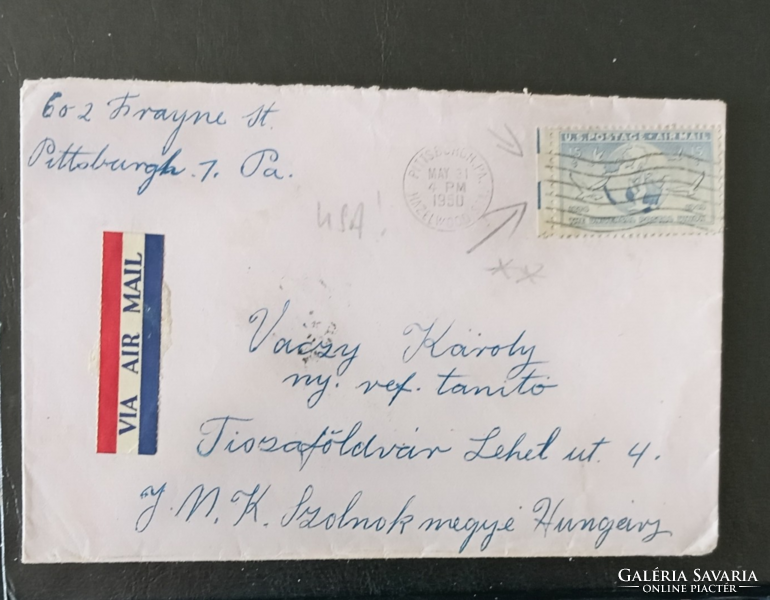 602 Frayne St.
Pittsburgh. 7. Pa.
PITTSBURGH, PA.
MAY 31
4 PM
1950
HAZELWOOD
U.S. POSTAGE - AIR MAIL
USA!
VIA AIR MAIL
Vaczy Károly
ny. ref. tanító
Tiszaföldvár Lehel ut. 4.
J. N. K. Szolnok megye Hungáry
GALÉRIA SAVARIA
ONLINE PIACTÉR